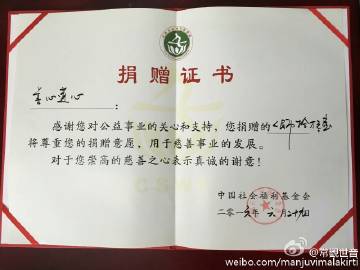 捐赠证书
心
:
感谢您对公益事业的关心和支持,您捐赠的
将尊重您的捐赠意愿,用于慈善事业的发展。
对于您崇高的慈善之心表示真诚的谢意!
CSWF
中国社会福利基金会
二〇一 年 六 月 日
@常观世音
weibo.com/manjuvimalakirti